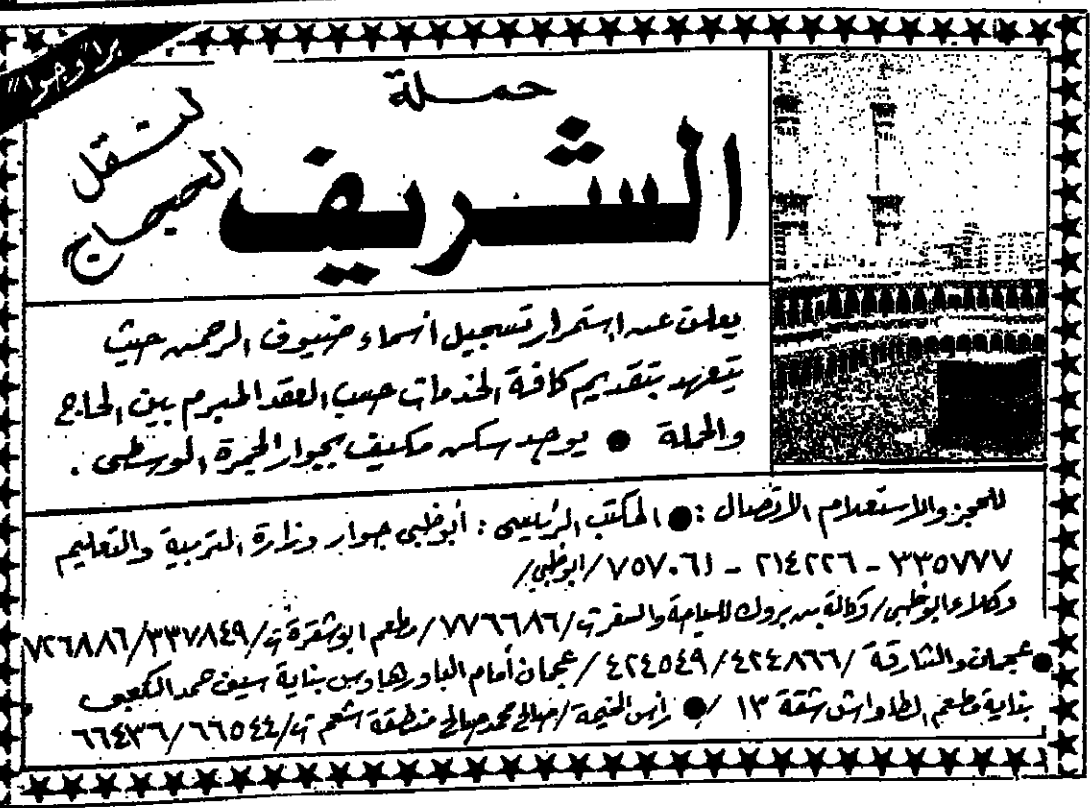 براً وجواً
حملة
الشريف
لنقل
الحجاج
يعلن عن استمرار تسجيل أسماء ضيوف الرحمن حيث
يتعهد بتقديم كافة الخدمات حسب العقد المبرم بين الحاج
والحملة ● يوجد سكن مكيف بجوار الجمرة الوسطى .
للحجز والاستعلام الاتصال : ● المكتب الرئيسي : أبوظبي جوار وزارة التربية والتعليم
٣٣٥٧٧٧ - ٢١٤٢٢٦ - ٧٥٧٠٦١ /ابوظبي/
وكلاء ابوظبي / وكالة بن بروك للسياحة والسفر ت/ ٧٧٦٦٨٦ / مطعم ابوشقرة ت/ ٣٣٧٨٤٩/ ٧٢٦٨٨٦
● عجمان والشارقة / ٤٢٤٨٦٦ / ٤٢٤٥٤٩ / عجمان أمام الباورهاوس بناية سيف حمد الكعبي
بناية مطعم الطاواش شقة ١٣ / ● رأس الخيمة / صالح محمد صالح منطقة شعم ت/ ٦٦٥٤٤/ ٦٦٤٣٦